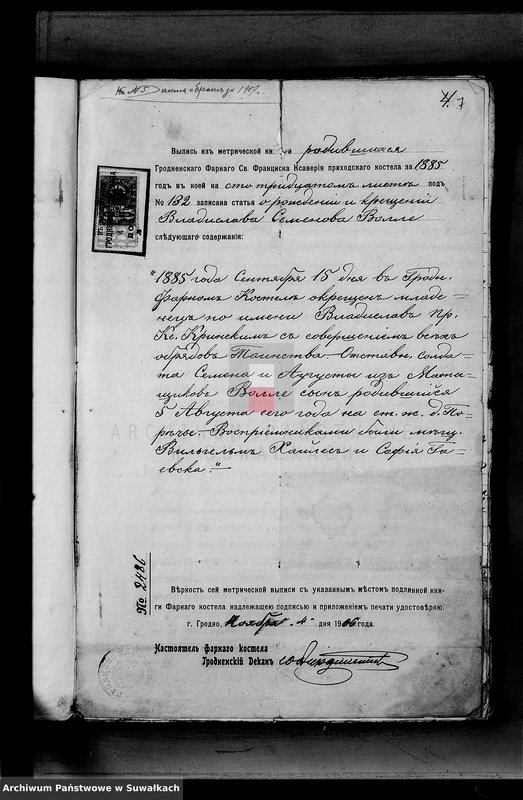 Къ № 5 акта о бракѣ до 1907г.
4. 7
Выпись изъ метрической кн о родившихся
Гродненскаго Фарнаго Св. Франциска Ксаверія приходскаго костела за 1885
годъ въ коей на сто тридцатомъ листѣ подъ
№ 132 записана статья о рожденіи и крещеніи
Владислава Семенова Волле
слѣдующаго содержанія:
„1885 года Сентября 15 дня въ Гродн.
Фарномъ Костелѣ окрещенъ младе-
нецъ по имени Владиславъ пр.
Кс. Кринскимъ съ совершеніемъ всѣхъ
обрядовъ Таинства. Отставн. солда-
та Семена и Августы изъ
Волле сынъ родившійся
5 Августа сего года на ст. ж. д. По-
рѣчье. Воспріемниками были
Вильгельмъ и Софія Га-
евска.“
№ 2486
Вѣрность сей метрической выписи съ указаннымъ мѣстомъ подлинной кни-
ги Фарнаго костела надлежащею подписью и приложеніемъ печати удостовѣряю.
г. Гродно, Ноября „4" дня 1906 года.
Настоятель фарнаго костела
Гродненскій Деканъ
Archiwum Państwowe w Suwałkach